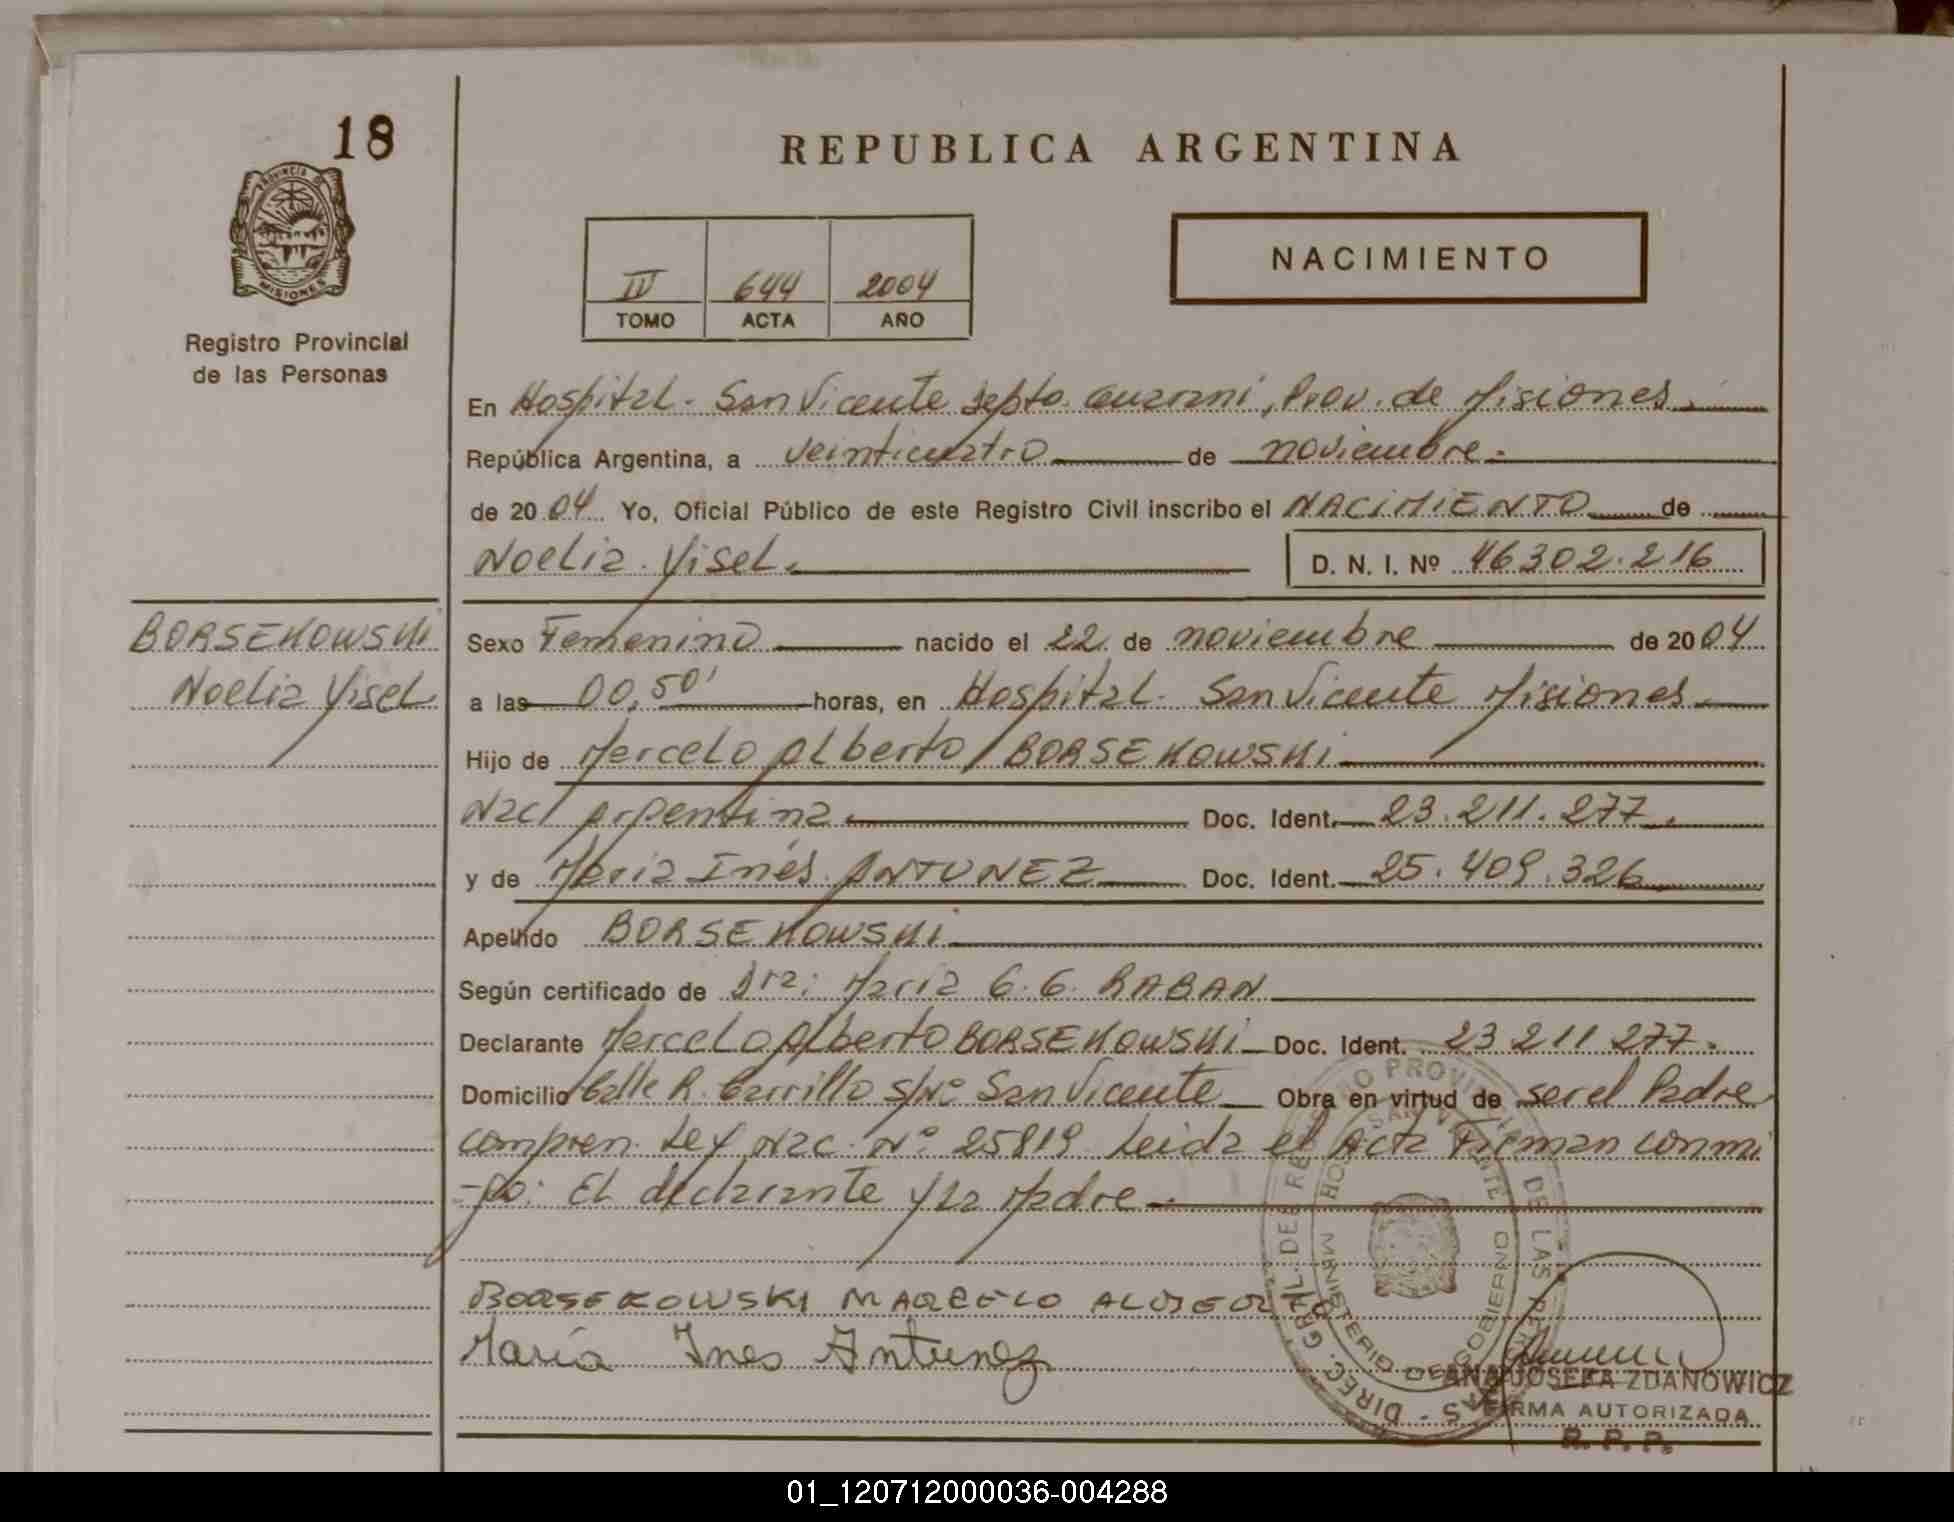 18
REPUBLICA ARGENTINA
PROVINCIA DE
MISIONES
Registro Provincial
de las Personas
NACIMIENTO
IV 644 2004
TOMO ACTA AÑO
En Hospital. San Vicente Depto. Guarani, Prov. de Misiones.
República Argentina, a veinticuatro de noviembre.
de 2004 Yo, Oficial Público de este Registro Civil inscribo el NACIMIENTO de
Noelia Yisel. D. N. I. Nº 46302.216
BORSEKOWSKI
Noelia Yisel
Sexo Femenino nacido el 22 de noviembre de 2004
a las 00,50' horas, en Hospital. San Vicente Misiones.
Hijo de Marcelo Alberto BORSEKOWSKI
Nac Argentina. Doc. Ident. 23.211.277.
y de Maria Inés ANTUNEZ Doc. Ident. 25.409.326
Apellido BORSEKOWSKI
Según certificado de Dra: Maria G.G. RABAN
Declarante Marcelo Alberto BORSEKOWSKI Doc. Ident. 23 211 277.
Domicilio Calle R. Carrillo S/Nº San Vicente Obra en virtud de ser el Padre
compren. Ley Nac. Nº 25819 Leida el Acta Firman conmi
-go: El declarante y la Madre
BORSEKOWSKI MARCELO ALBERTO
María Ines Antunez
DIREC. GRAL. DEL REGISTRO PROVINCIAL DE LAS PERSONAS
HOSP. SAN VICENTE
MINISTERIO DE GOBIERNO
ANA JOSEFA ZDANOWICZ
FIRMA AUTORIZADA
R. P. P.
01_120712000036-004288